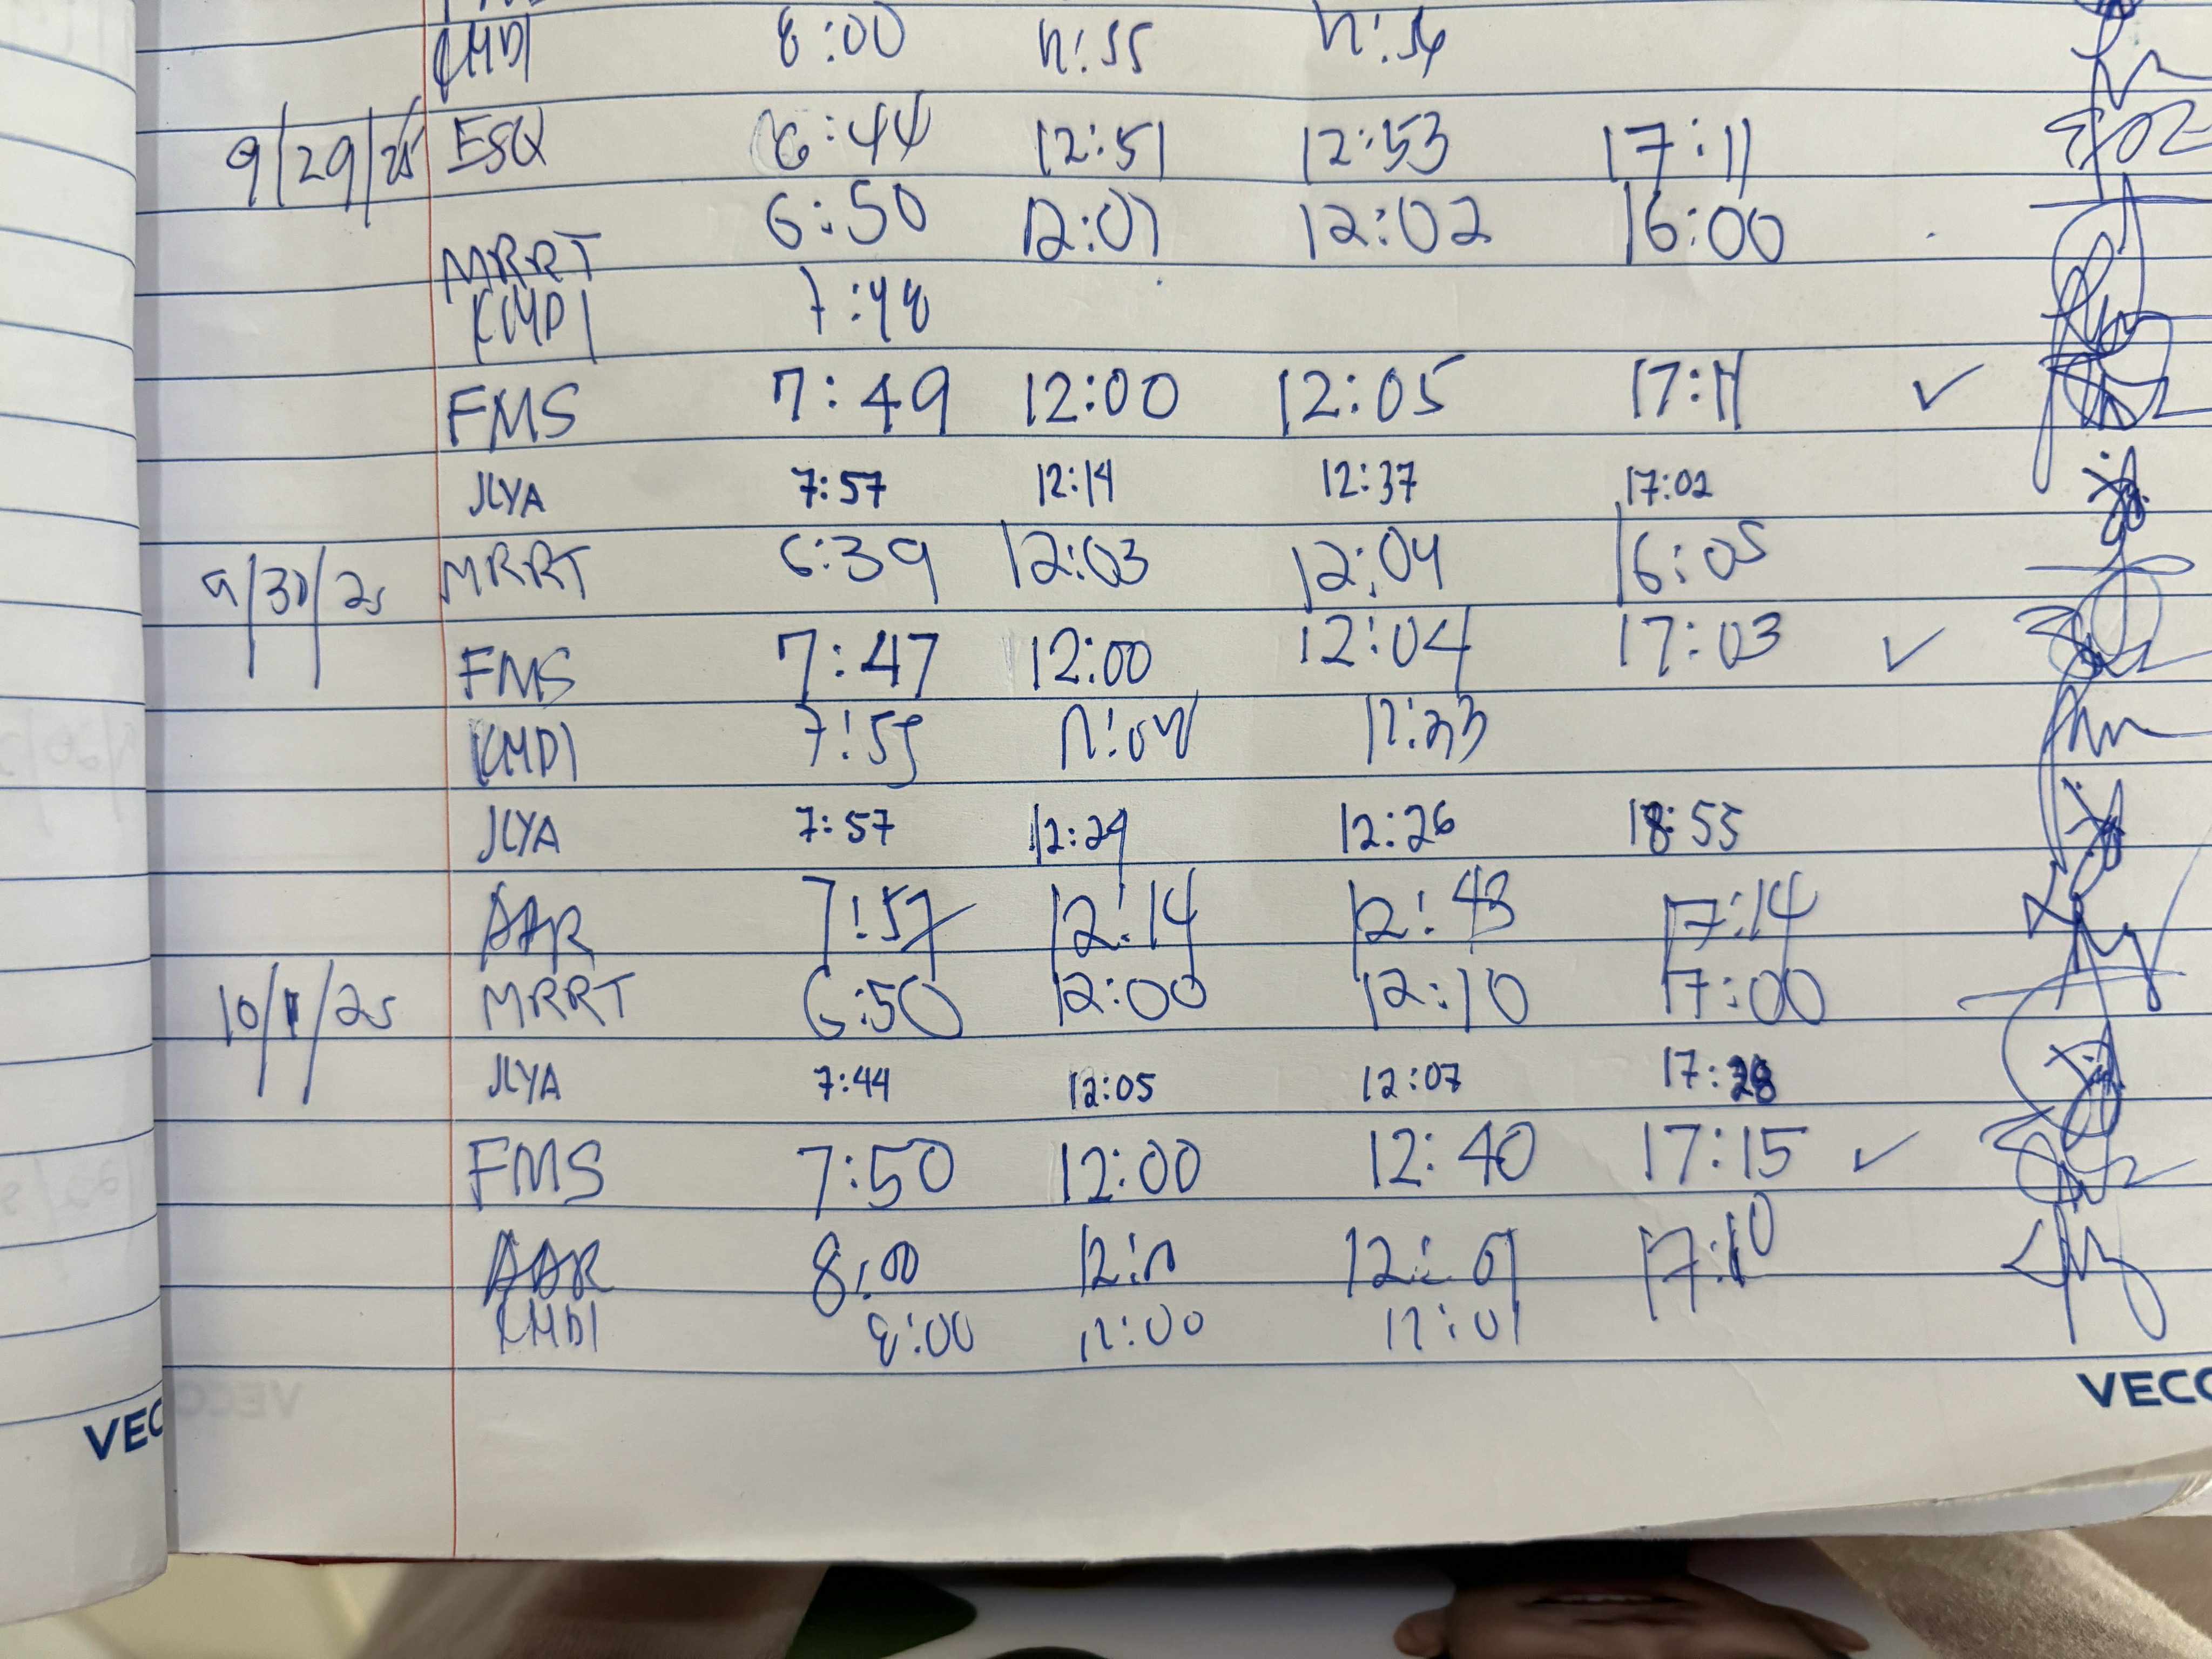 KMDI 8:00 12:55 12:56
9/29/25 ESQ 6:44 12:51 12:53 17:11
MRRT 6:50 12:01 12:02 16:00
KMDI 7:48
FMS 7:49 12:00 12:05 17:11 ✓
JLYA 7:57 12:14 12:37 17:02
9/30/25 MRRT 6:39 12:03 12:04 16:05
FMS 7:47 12:00 12:04 17:03 ✓
KMDI 7:59 12:33
JLYA 7:57 12:24 12:26 18:55
AAR 7:57 12:14 12:43 17:14
10/1/25 MRRT 6:50 12:00 12:10 17:00
JLYA 7:44 12:05 12:07 17:28
FMS 7:50 12:00 12:40 17:15 ✓
AAR 8:00 12:01 17:10
KMDI 8:00 12:00 12:01
VEC VECO